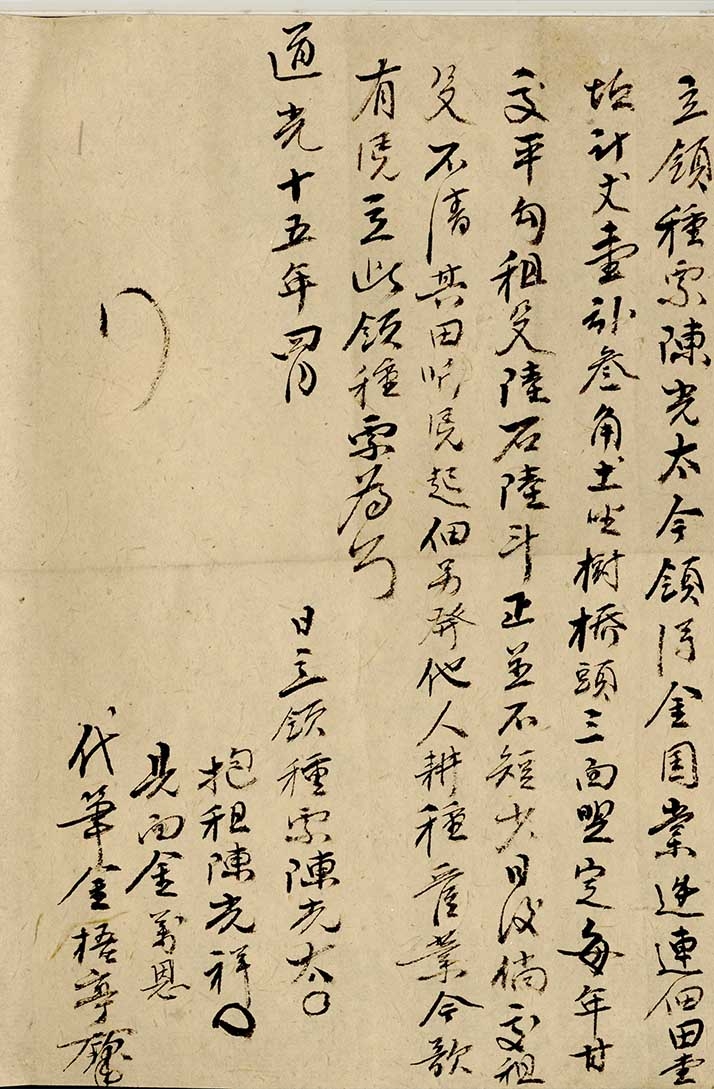 立領種票陳光太今領得金園業進連佃田壹
坵計丈壹畝叁角土坐樹橋頭三面盟定每年甘
交平勾租又陸石陸斗正並不短少日後倘交租
又不清其田听凭起佃另發他人耕種管業今欲
有凭立此領種票為
道光十五年四月
日立領種票陳光太
抱租陳光祥
見面金萬恩
代筆金梧亭